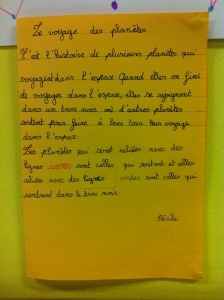 Le voyage des planètes
C'est l'histoire de plusieurs planètes qui
voyagent dans l'espace. Quand elles on fini
de voyager dans l'espace, elles se rejoignent
dans un trou noir où d'autres planètes
sortent pour faire à leur tour leur voyage
dans l'espace.
Les planètes qui sont reliées avec des
lignes roses sont celles qui sortent et celles
reliées avec des lignes vertes sont celles qui
rentrent dans le trou noir.